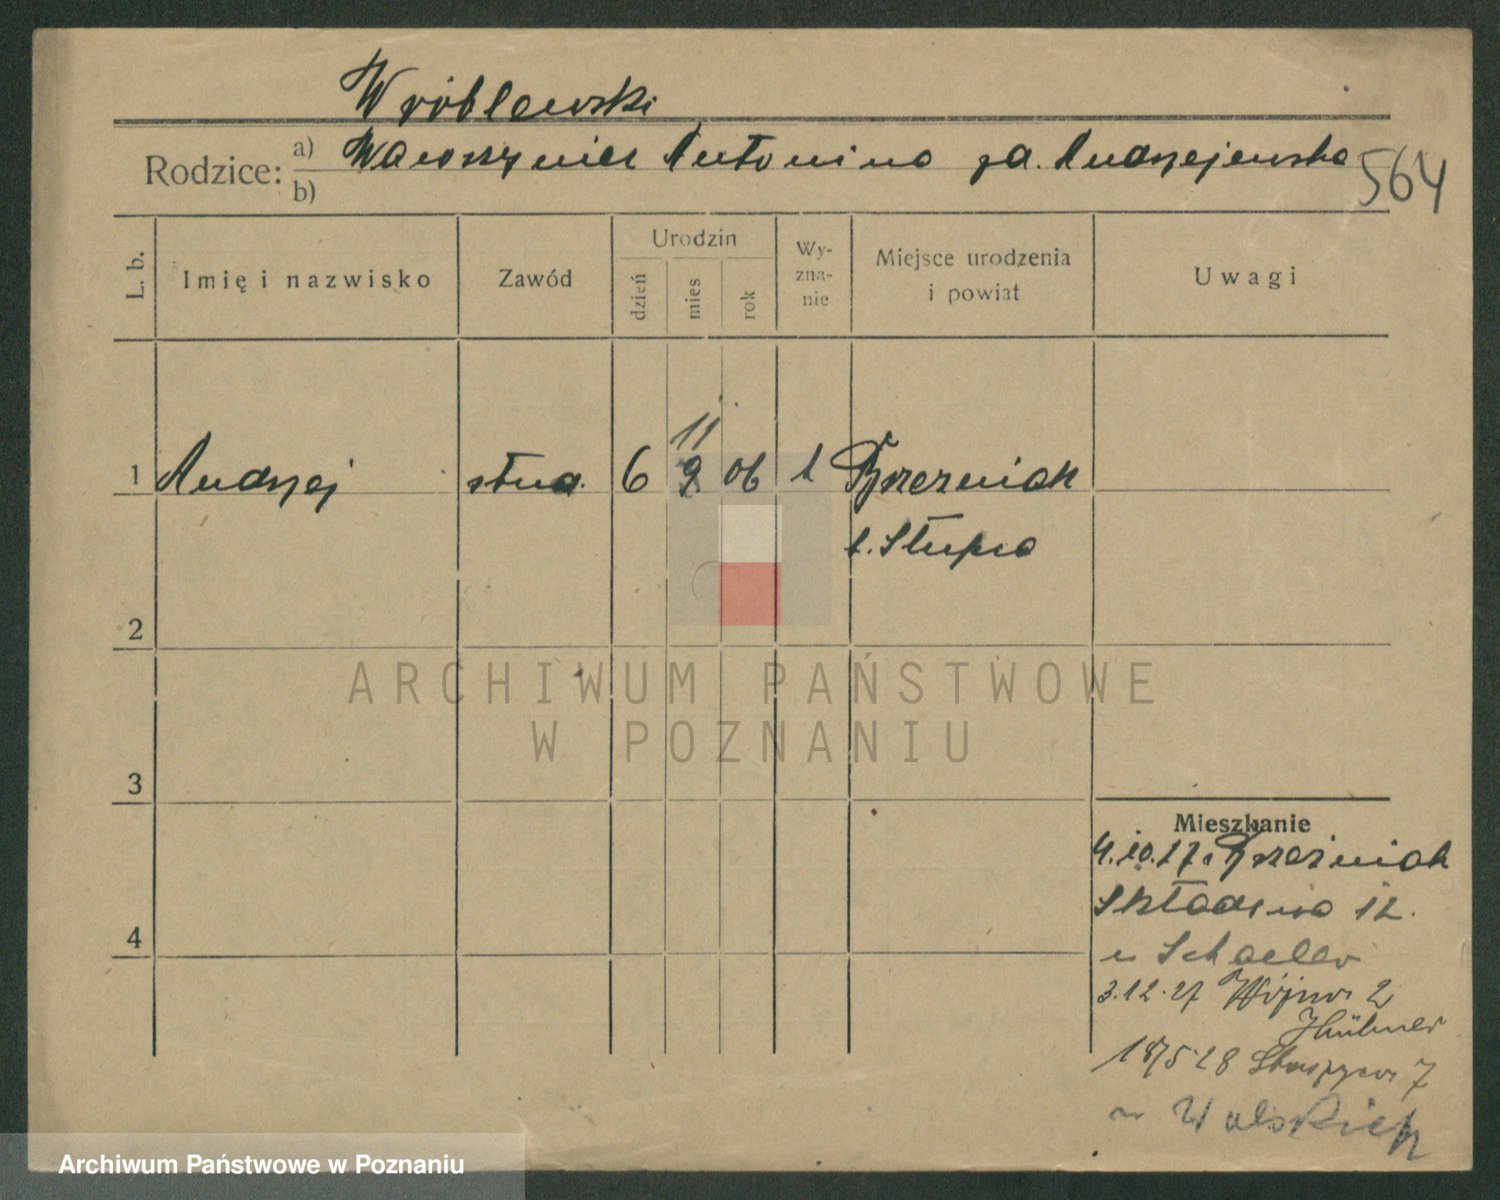 Wróblewski
Rodzice: a) Wawrzyniec Antonina zd. Andrzejewska
b)
564
L. b.
Imię i nazwisko
Zawód
Urodzin
dzień
mies.
rok
Wy-
zna-
nie
Miejsce urodzenia
i powiat
Uwagi
11
1 Andrzej stud. 6 9 06 k Brzeźniak
p. Słupca
2
3
4
ARCHIWUM PAŃSTWOWE
W POZNANIU
Mieszkanie
4.10.27 Brzeźniak
Składowa 12.
u Schaeller
3.12.27 Wójtow 2
Hübner
18/5 28 Staszyca 7
u Walskich
Archiwum Państwowe w Poznaniu